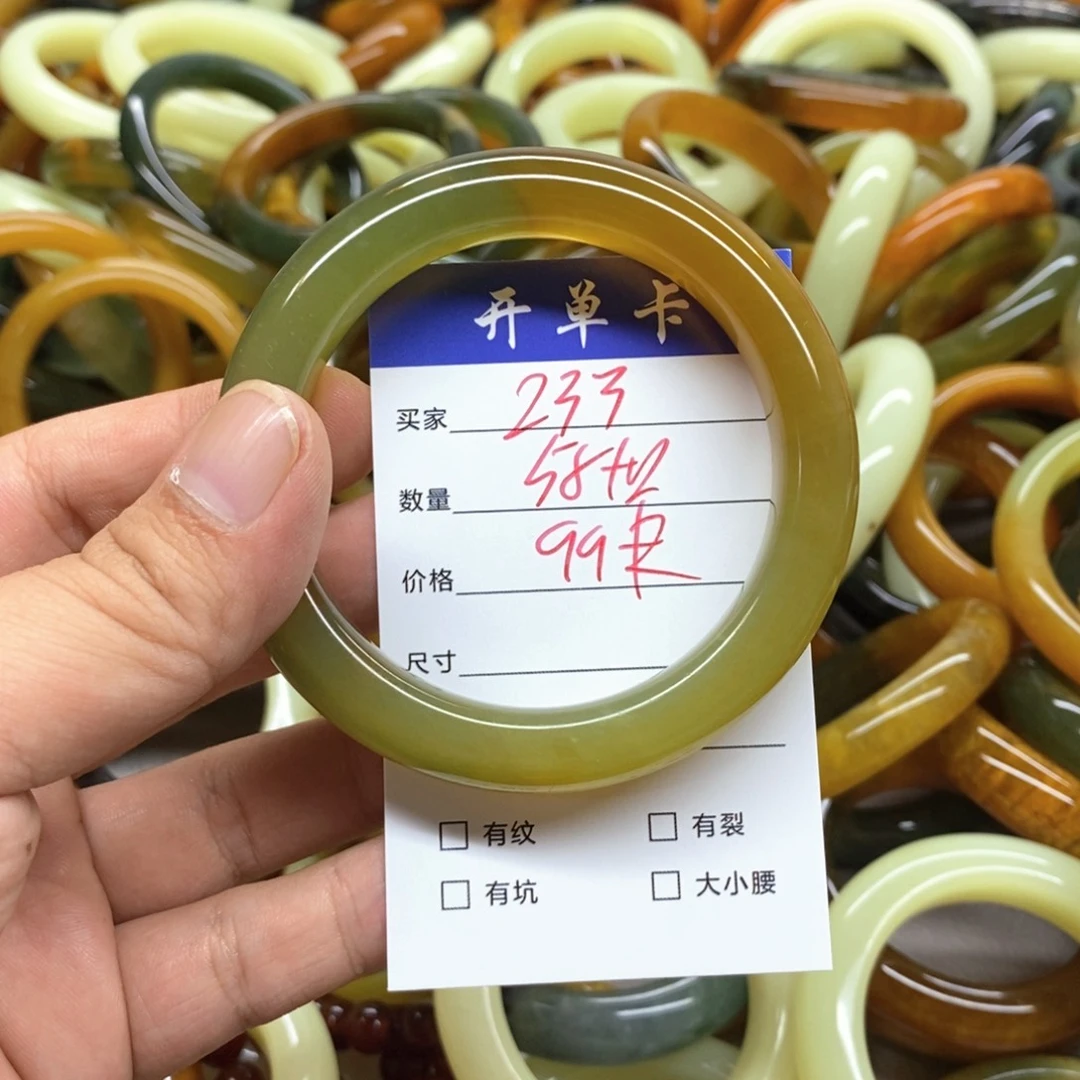 开单卡
买家 233
数量 58+
价格 99
尺寸
有纹 有裂
有坑 大小腰